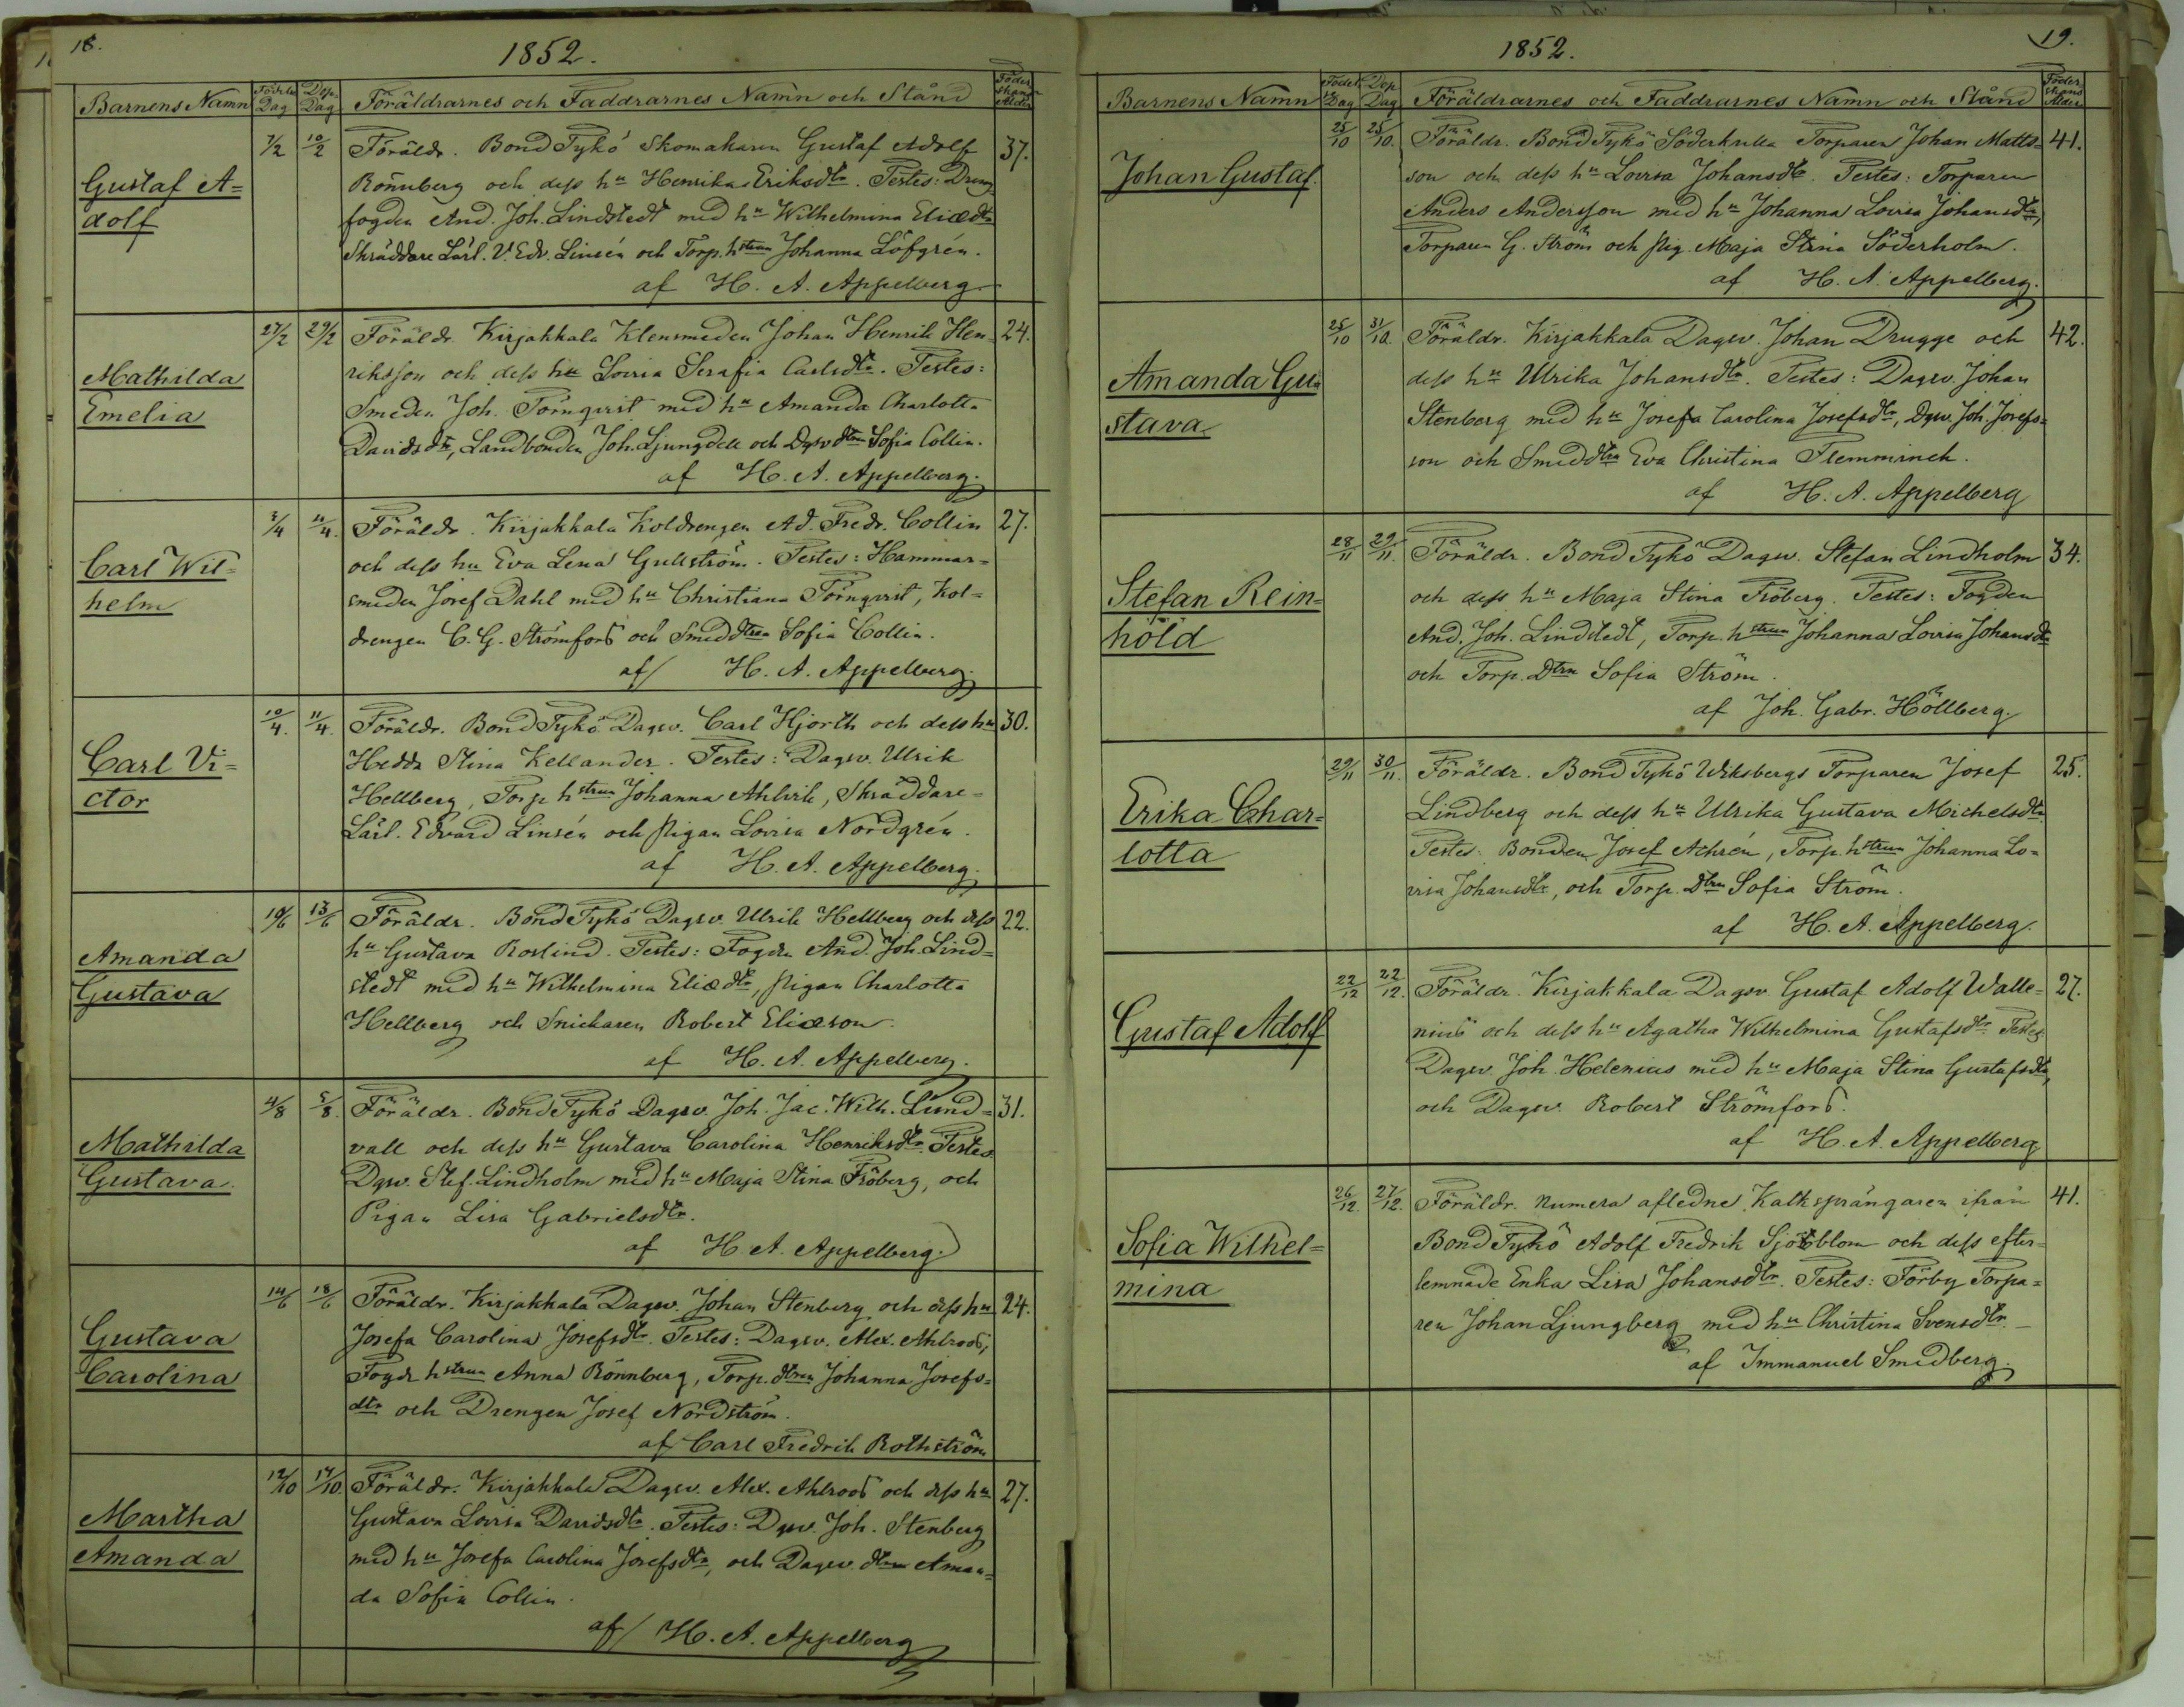 18.
1852.
Barnens Namn Födelse Dag Dop. Dag Föräldrarnes och Faddrarnes Namn och Stånd Föder skans Ålder
Gustaf A=
dolf
7/2 10/2 Föräldr. Bond Tykö Skomakaren Gustaf Adolf 37.
Rönnberg och dess hu Henrika Eriksdtr. Testes: Dreng
fogden And. Joh. Lindstedt med hu Wilhelmina Eliædtr
Skräddare Lärl. V. Edv. Linsén och Torp. hstrun Johanna Löfgrén.
af H. A. Appelberg
Mathilda
Emelia
27/2 29/2 Föräldr. Kirjakkala Klensmeden Johan Henrik Hen= 24.
riksson och dess hu Lovisa Serafia Carlsdtr. Testes:
Smeden Joh. Törnqvist med hu Amanda Charlotta
Davidsdtr, Landbonden Joh. Ljungdell och Dgsv dtrn Sofia Collin.
af H. A. Appelberg.
Carl Wil=
helm
3/4 11/4. Föräldr. Kirjakkala Koldrengen Ad. Fredr. Collin 27.
och dess hu Eva Lena Gullström. Testes: Hammar=
smeden Josef Dahl med hu Christiana Törnqvist, Kol=
drengen C. G. Strömfors och Smeddtren Sofia Collin.
af H. A. Appelberg.
Carl Vi=
ctor
10/4. 11/4. Föräldr. Bond Tykö Dagsv. Carl Hjorth och dess hu 30.
Hedda Stina Kellander. Testes: Dagsv. Ulrik
Hellberg, Torp hstrun Johanna Ahlvik, Skräddare=
Lärl. Edvard Linsén och Pigan Lovisa Nordgrén.
af H. A. Appelberg.
Amanda
Gustava
10/6 13/6 Föräldr. Bond Tykö Dagsv. Ulrik Hellberg och dess 22.
hu Gustava Roslind. Testes: Fogden And. Joh. Lind=
stedt med hu Wilhelmina Eliædtr, Pigan Charlotta
Hellberg och Snickaren Robert Eliæson.
af H. A. Appelberg.
Mathilda
Gustava.
4/8 5/8. Föräldr. Bond Tykö Dagsv. Joh. Jac. Wilh. Lund= 31.
vall och dess hu Gustava Carolina Henriksdtr. Testes
Dgsv. Stef. Lindholm med hu Maja Stina Fröberg, och
Pigan Lisa Gabrielsdtr.
af H. A. Appelberg.
Gustava
Carolina
14/6 18/6 Föräldr. Kirjakkala Dagsv. Johan Stenberg och dess hu 24.
Josefa Carolina Josefsdtr. Testes: Dagsv. Alex. Ahlroos,
Fogde hstrun Anna Rönnberg, Torp. dtren Johanna Josefs=
dtr och Drengen Josef Nordström.
af Carl Fredrik Rothström
Martha
Amanda
12/10 17/10. Föräldr. Kirjakkala Dagsv. Alex. Ahlroos och dess hu 27.
Gustava Lovisa Davidsdtr. Testes: Dgsv. Joh. Stenberg
med hu Josefa Carolina Josefsdtr, och Dagsv. dtren Aman=
da Sofia Collin.
af H. A. Appelberg
19.
1852.
Barnens Namn Födelse Dag Dop Dag Föräldrarnes och Faddrarnes Namn och Stånd Föder skans Ålder
Johan Gustaf.
25/10 25/10. Föräldr. Bond Tykö Söderkulla Torparen Johan Matts= 41.
son och dess hu Lovisa Johansdtr. Testes: Torparen
Anders Andersson med hu Johanna Lovisa Johansdtr,
Torparen G. Ström och Pig. Maja Stina Söderholm.
af H. A. Appelberg.
Amanda Gu=
stava
25/10 31/10. Föräldr. Kirjakkala Dagsv. Johan Drugge och 42.
dess hu Ulrika Johansdtr. Testes: Dagsv. Johan
Stenberg med hu Josefa Carolina Josefsdtr, Dgsv. Joh. Josefs=
son och Smeddtren Eva Christina Flemminck.
af H. A. Appelberg
Stefan Rein=
hold
28/11 29/11. Föräldr. Bond Tykö Dagsv. Stefan Lindholm 34.
och dess hu Maja Stina Fröberg. Testes: Fogden
And. Joh. Lindstedt, Torp. hstrun Johanna Lovisa Johansdtr
och Torp. Dtrn Sofia Ström.
af Joh. Gabr. Höllberg.
Erika Char=
lotta
29/11 30/11. Föräldr. Bond Tykö Ulksbergs Torparen Josef 25.
Lindberg och dess hu Ulrika Gustava Michelsdtr.
Testes: Bonden Josef Achrén, Torp. hstrun Johanna Lo=
visa Johansdtr, och Torp. Dtrn Sofia Ström.
af H. A. Appelberg.
Gustaf Adolf
22/12 22/12. Föräldr. Kirjakkala Dagsv. Gustaf Adolf Walle= 27.
nius och dess hu Agatha Wilhelmina Gustafsdtr. Testes
Dagsv. Joh. Helenius med hu Maja Stina Gustafsdtr,
och Dagsv. Robert Strömfors.
af H. A. Appelberg
Sofia Wilhel=
mina
26/12. 27/12. Föräldr. Numera afledne Kalksprängaren ifrån 41.
Bond Tykö Adolf Fredrik Sjöblom och dess efter=
lemnade Enka Lisa Johansdtr. Testes: Förby Torpa=
ren Johan Ljungberg med hu Christina Svensdtr.
af Immanuel Smedberg.